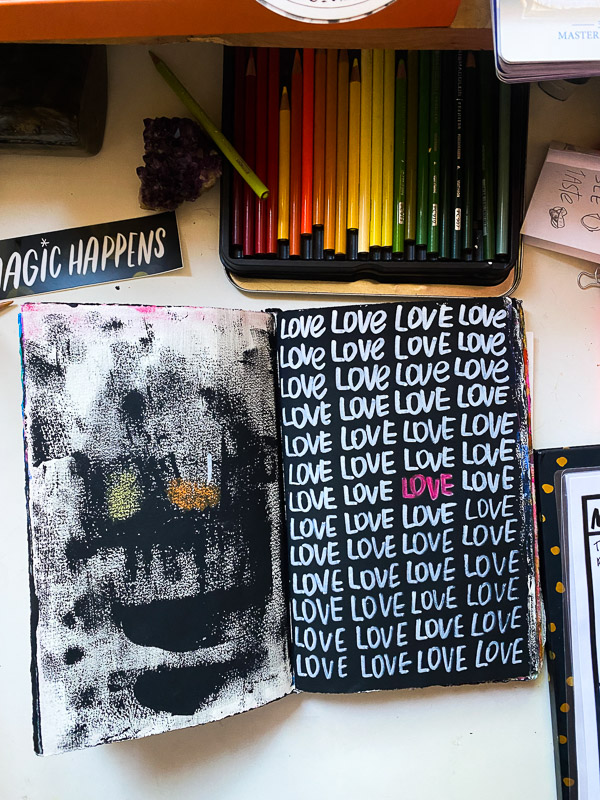 MASTER
TASTE
MAGIC HAPPENS
LOVe LOVe LOVE LOVe
LOVE LOVe LOVE LOVE
LOVe LOVe LOVe LOVe
LOVE LOVE LOVE LOVE
LOVE LOVE LOVE LOVE
LOVE LOVE LOVE LOVE
LOVE LOVE LOVE LOVE
LOVE LOVE LOVE LOVE
LOVE LOVE LOVE LOVE
LOVE LOVE LOVE LOVE
LOVE LOVE LOVE LOVE
LOVE LOVE LOVE LOVE
LOVE LOVE LOVE LOVE